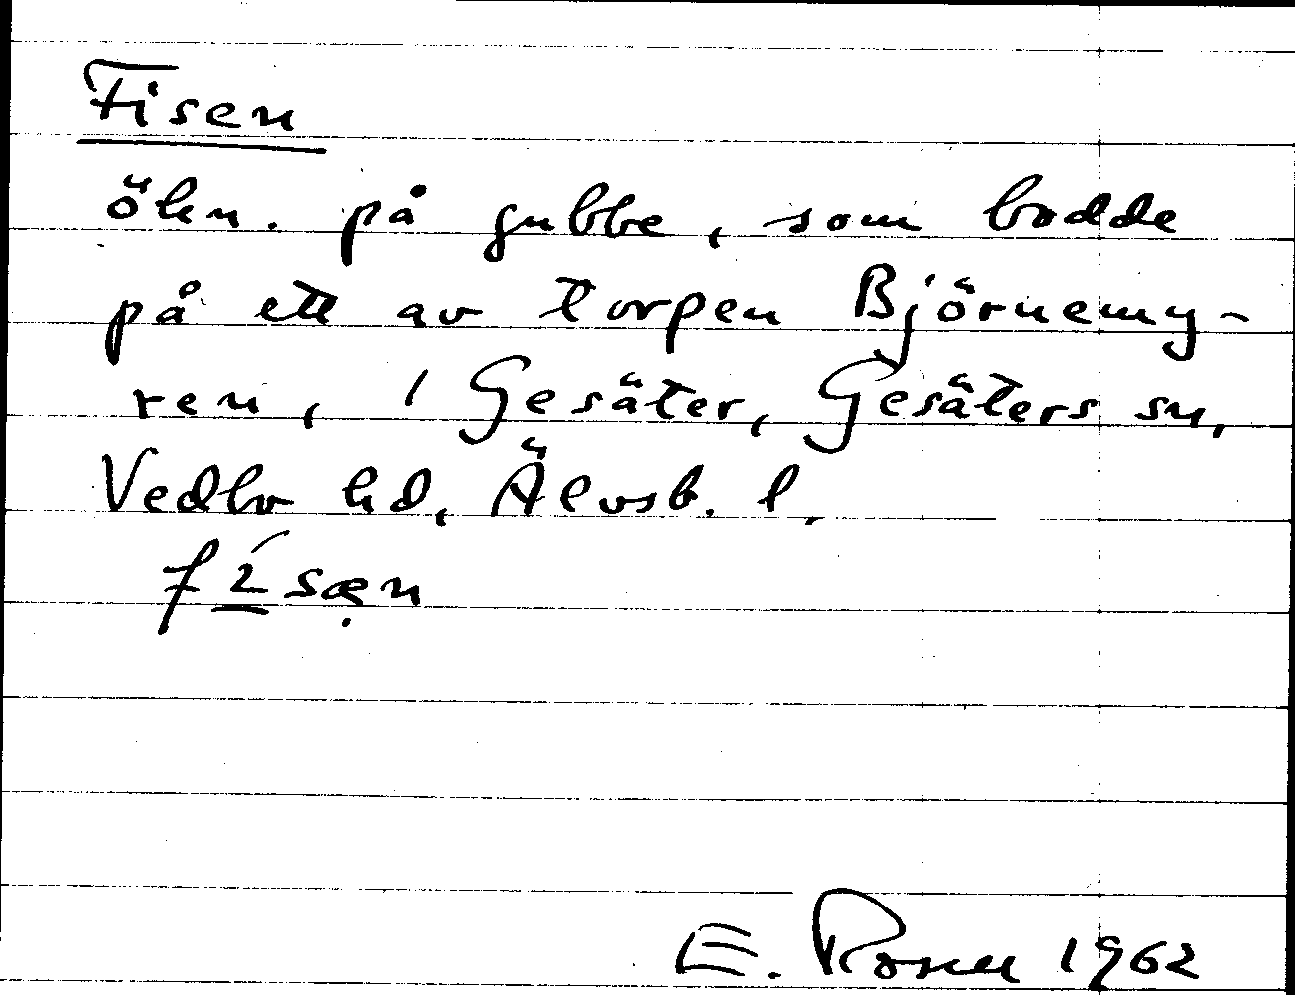 Fisen
ökn. på gubbe, som bodde
på ett av torpen Björnemy-
ren, 1 Gesäter, Gesäters sn,
Vedbo hd, Älvsb. l.
E. Rosen 1962